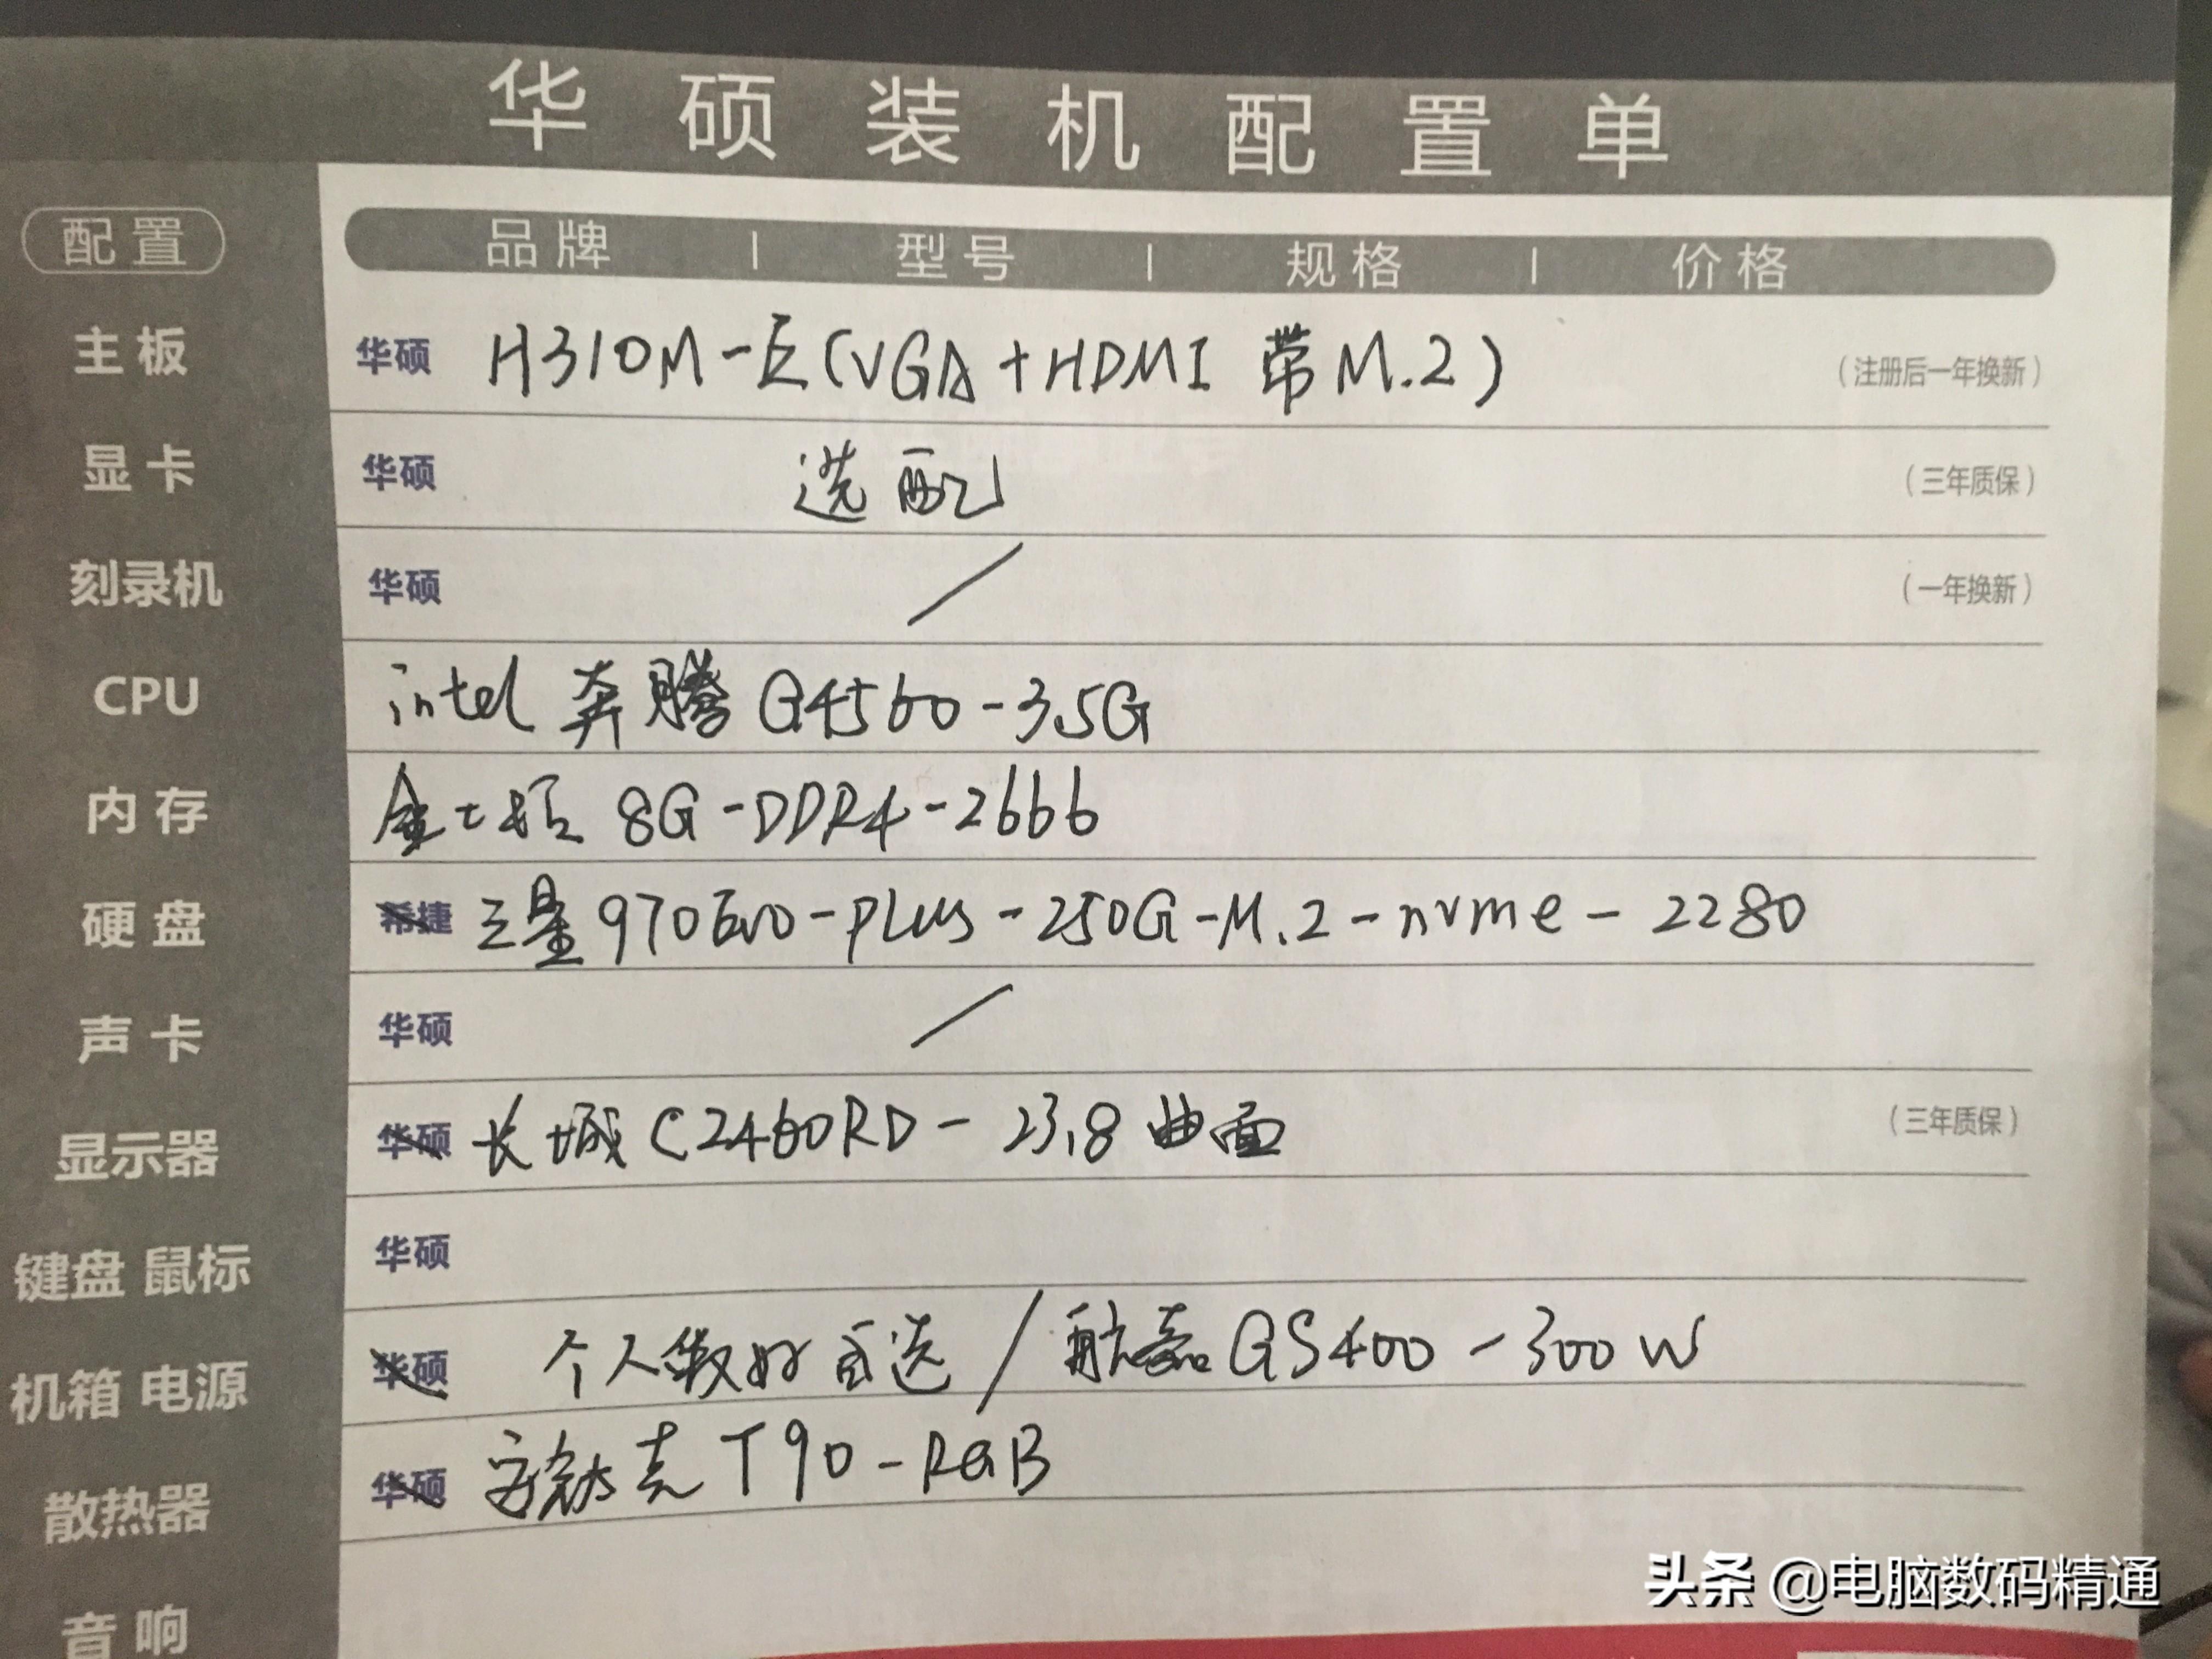 华硕装机配置单
配置 品牌 | 型号 | 规格 | 价格
主板 华硕 H310M-E(VGA+HDMI 带M.2) (注册后一年换新)
显卡 华硕 选配 (三年质保)
刻录机 华硕 / (一年换新)
CPU intel 奔腾 G4560-3.5G
内存 金士顿 8G-DDR4-2666
硬盘 希捷 三星970Evo-PLUS-250G-M.2-nvme-2280
声卡 华硕 /
显示器 华硕 长城C2460RD-23.8曲面 (三年质保)
键盘 鼠标 华硕
机箱 电源 华硕 个人爱好自选/航嘉GS400-300W
散热器 华硕 安钛克T90-RGB
音响
头条 @电脑数码精通